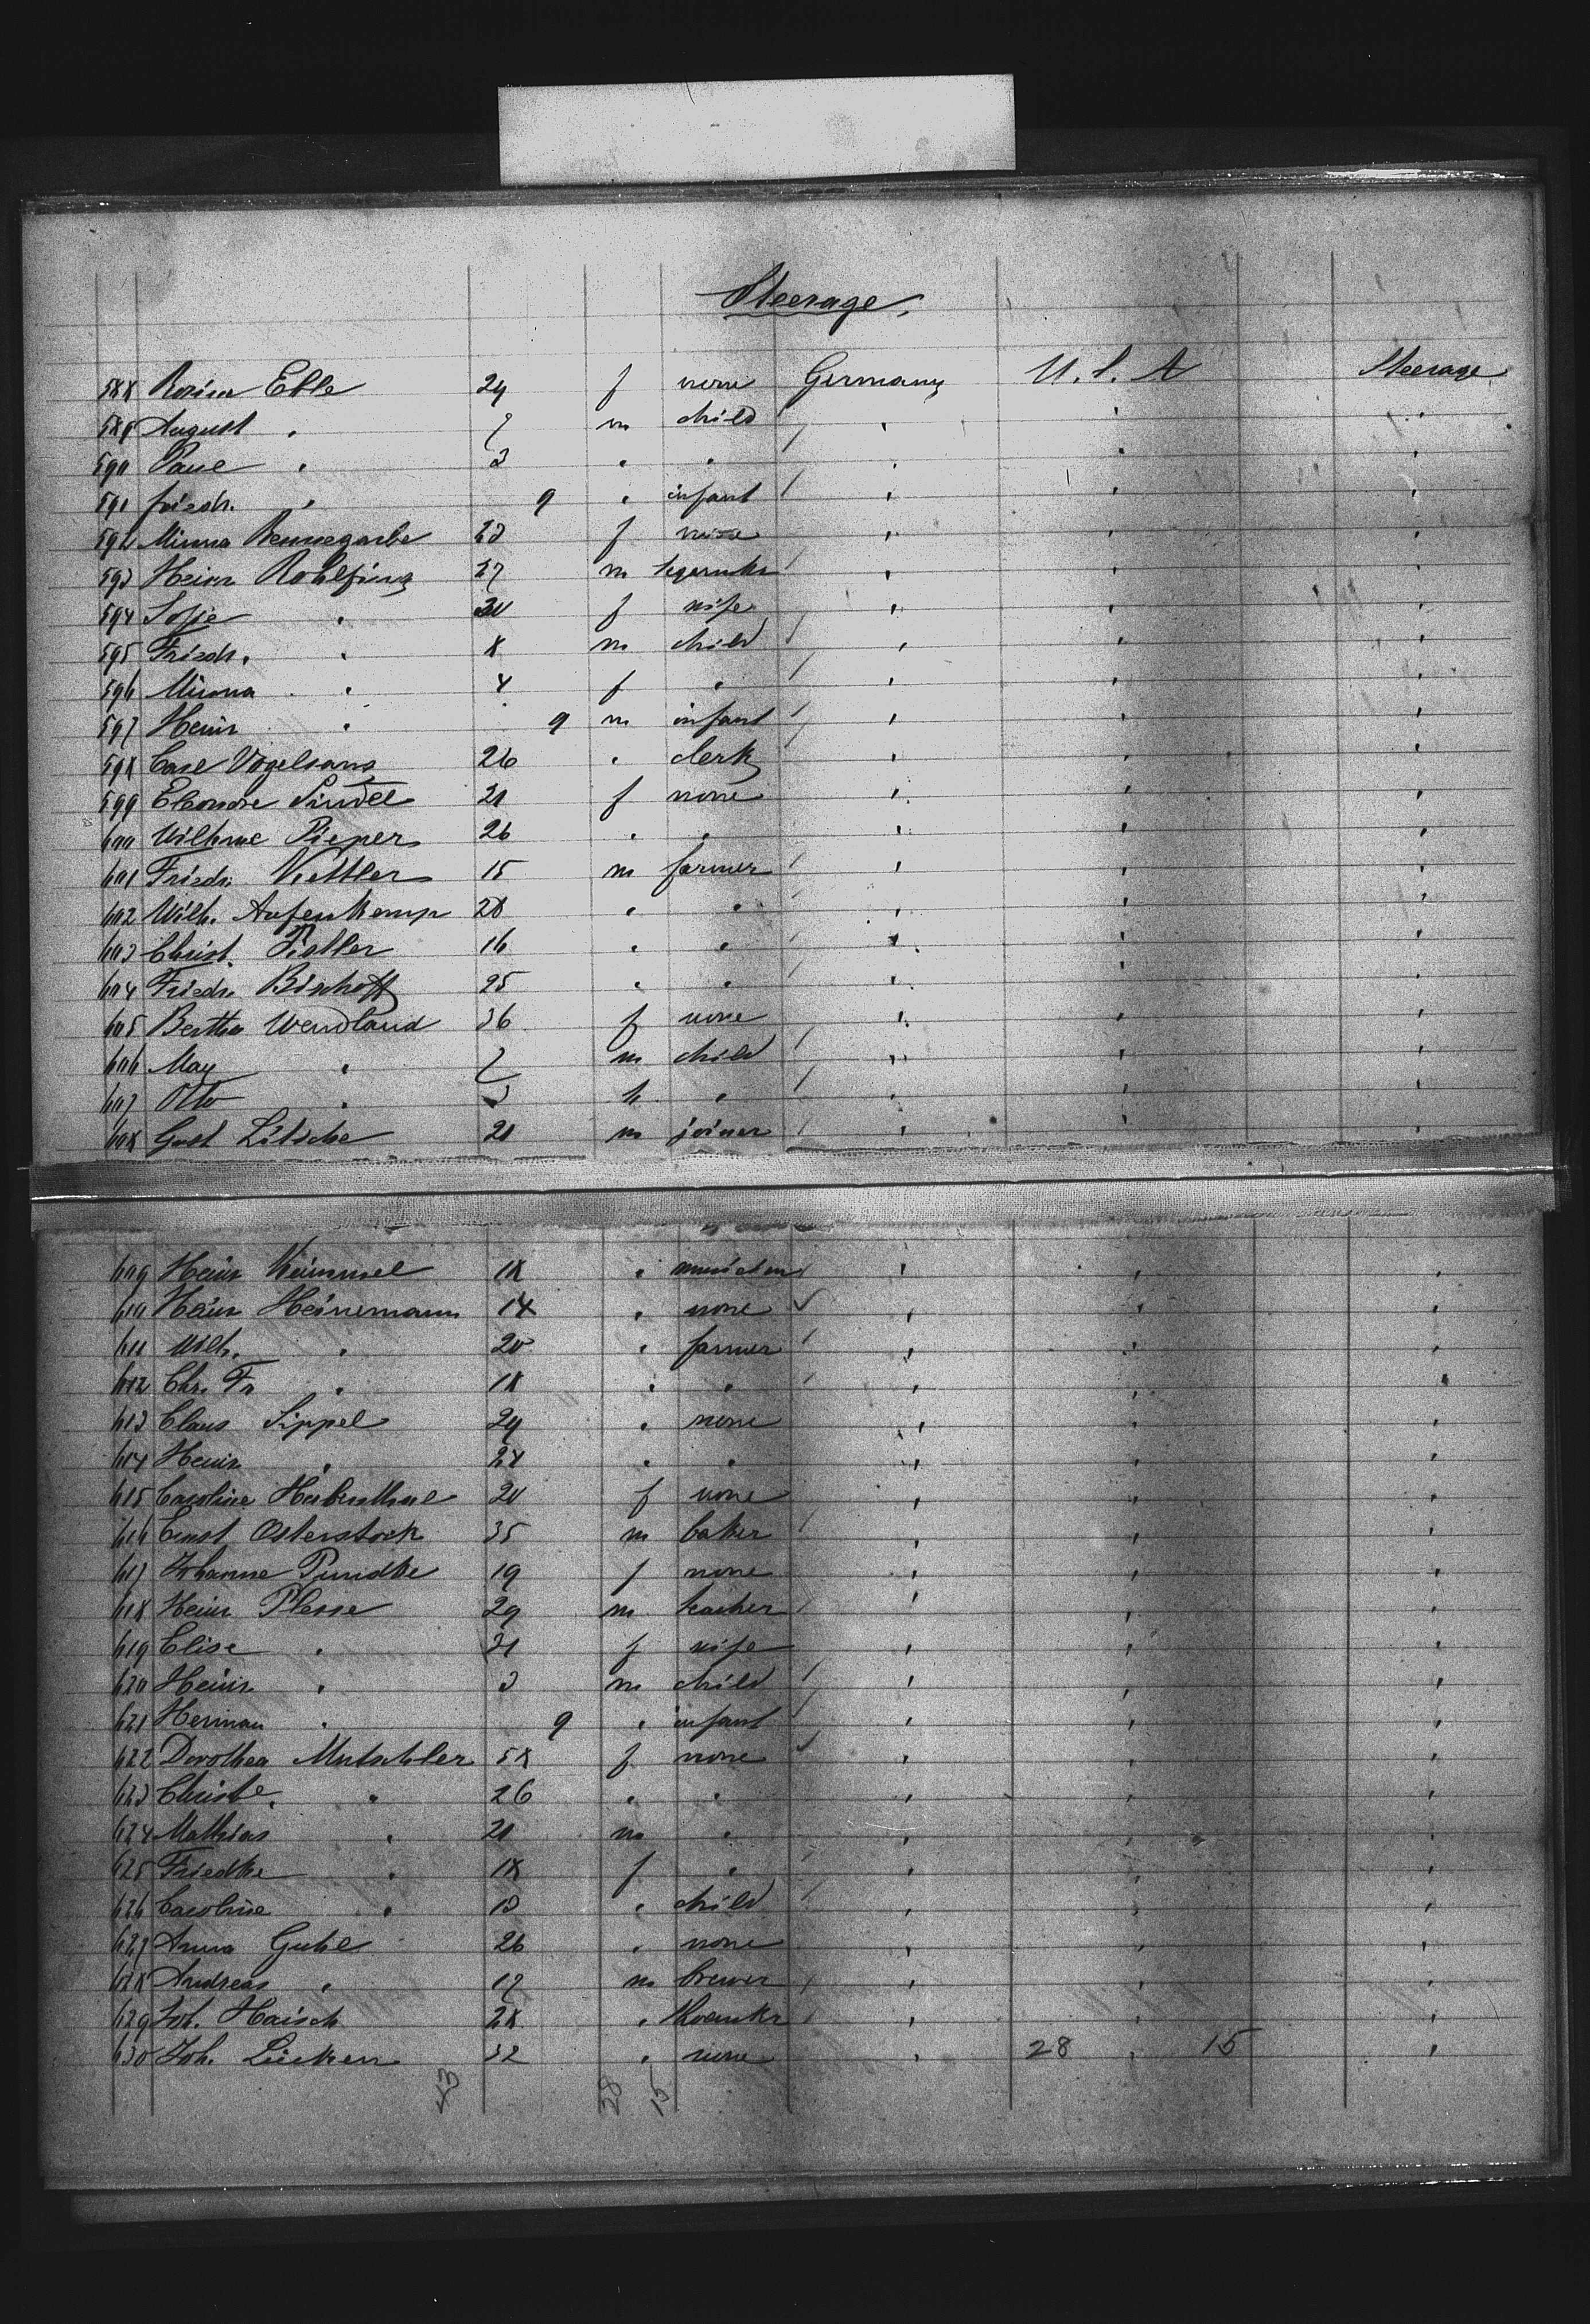 Steerage.
588 Rosina Eble 29 f none Germany U. S. A Steerage
589 August " 7 m child " " "
590 Paul " 3 " " " " "
591 Friedr. " 9 " infant " " "
592 Minna Rennegarbe 23 f none " " "
593 Heinr Rohlfing 37 m " " "
594 Sofie " 30 f wife " " "
595 Friedr. " 8 m child " " "
596 Minna " 4 f " " " "
597 Heinr " 9 m infant " " "
598 Carl Vogelsang 26 " clerk " " "
599 Eleonore Sindel 21 f none " " "
600 Wilhme Pieper 26 " " " " "
601 Friedr. Kettler 15 m farmer " " "
602 Wilh. Aufenkamp 28 " " " " "
603 Christ. 16 " " " " "
604 Friedr. Bischoff 25 " " " " "
605 Bertha Wendland 36 f none " " "
606 Max " 7 m child " " "
607 Otto " 3 " " " "
608 Gust Litsche 21 m joiner " " "
609 Heinr Kümmel 18 " musician " " "
610 Heinr Heinemann 14 " none " " "
611 Wilh. " 20 " farmer " " "
612 Chr. Fr " 18 " " " " "
613 Claus Sippel 29 " none " " "
614 Heinr " 24 " " " " "
615 Caroline Habenthal 20 f none " " "
616 Ernst Osterstock 35 m baker " " "
617 Johanne 19 f none " " "
618 Heinr Plesse 29 m teacher " " "
619 Elise " 31 f wife " " "
620 Heinr " 3 m child " " "
621 Herman " 9 " infant " " "
622 Dorothea Mutschler 58 f none " " "
623 Christe. " 26 " " " " "
624 Mathias " 21 m " " " "
625 Friedke " 18 f " " " "
626 Caroline " 13 " child " " "
627 Anna Guhl 26 " none " " "
628 Andreas " 17 m brewer " " "
629 Joh. Haisch 28 " shoemkr " " "
630 Joh. Lücken 32 " none " 28 " 15 "
43 28 15